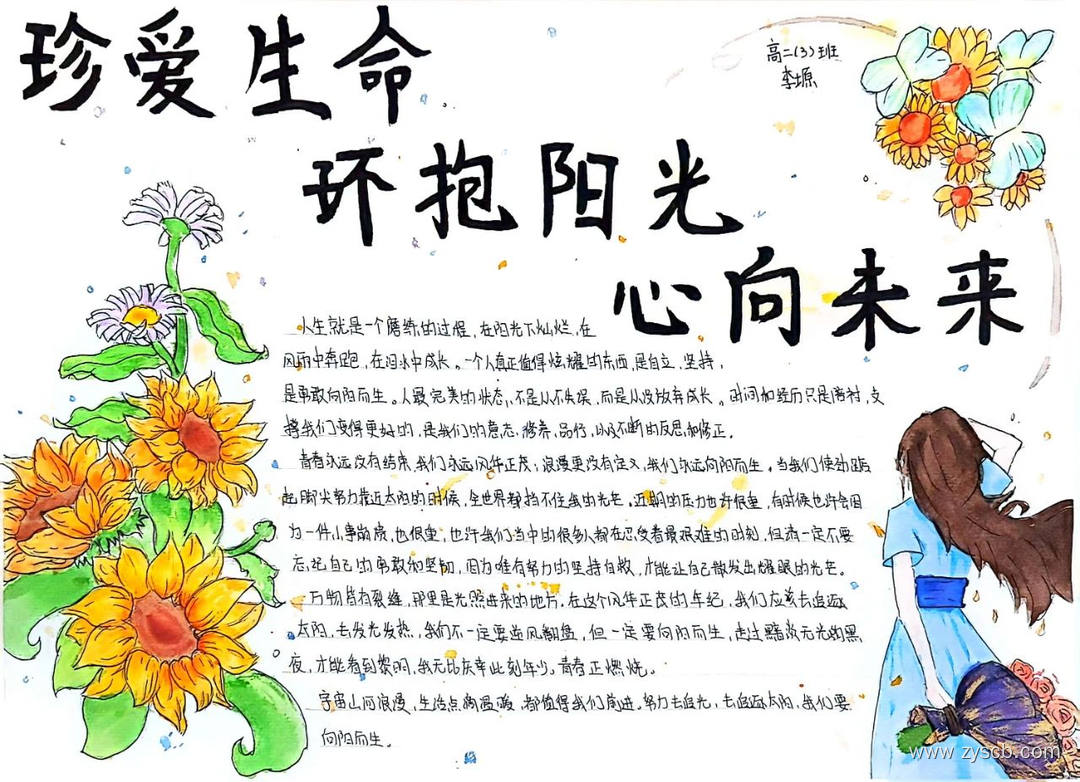 珍爱生命
高二(3)班
李塬
环抱阳光
心向未来
人生就是一个磨练的过程，在阳光下灿烂，在
风雨中奔跑，在泪水中成长。一个人真正值得炫耀的东西，是自立，坚持，
是勇敢向阳而生。人最完美的状态，不是从不失误，而是从没放弃成长。时间和经历只是陪衬，支
撑我们变得更好的，是我们的意志，修养，品行，以及不断的反思和修正。
青春永远没有结束，我们永远风华正茂；浪漫更没有定义，我们永远向阳而生。当我们使劲踮
起脚尖努力靠近太阳的时候，全世界都挡不住我的光芒。近期的压力也许很重，有时候也许会因
为一件小事崩溃，也很重，也许我们当中的很多人都在忍受着最艰难的时刻，但请一定不要
忘记自己的勇敢和坚韧，因为唯有努力的坚持自救，才能让自己散发出耀眼的光芒。
万物皆有裂缝，那里是光照进来的地方，在这个风华正茂的年纪，我们应该去追逐
太阳，去发光发热，我们不一定要逆风翻盘，但一定要向阳而生，走过黯淡无光的黑
夜，才能看到黎明，我无比庆幸此刻年少，青春正燃烧。
宇宙山河浪漫，生活点滴温暖，都值得我们前进。努力去追光，去追逐太阳，我们要
向阳而生。
www.zyscb.com